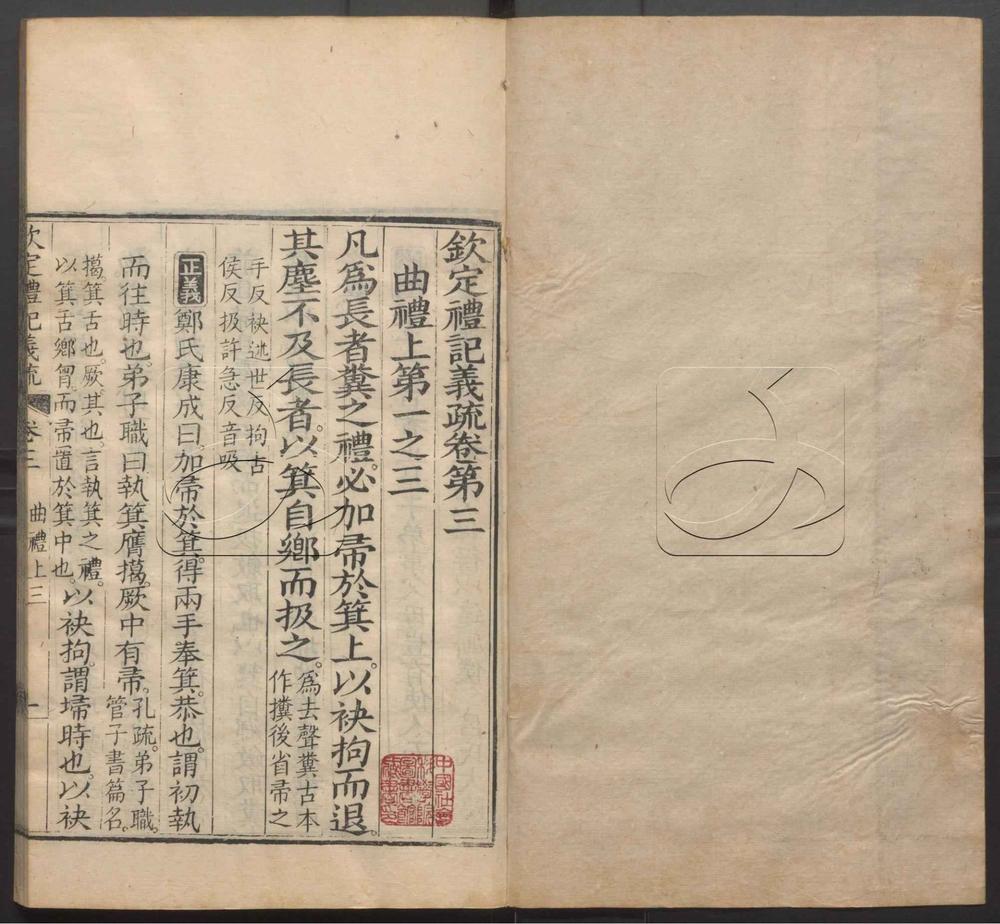 欽定禮記義疏卷第三
曲禮上第一之三
凡爲長者糞之禮。必加帚於箕上。以袂拘而退。
其塵不及長者。以箕自鄉而扱之。爲去聲糞古本
作攩後省帚之
手反袂迷世反拘古
侯反扱許急反音吸
正義 鄭氏康成曰。加帚於箕。得兩手奉箕。恭也。謂初執
而往時也。弟子職曰執箕膺擖。厥中有帚。孔疏。弟子職。
管子書篇名。
擖。箕舌也。厥。其也。言執箕之禮。
以箕舌鄉胷。而帚置於箕中也。以袂拘。謂埽時也。以袂
欽定禮記義疏 卷三 曲禮上三 一
中國社會
科學院
圖書館
藏書印